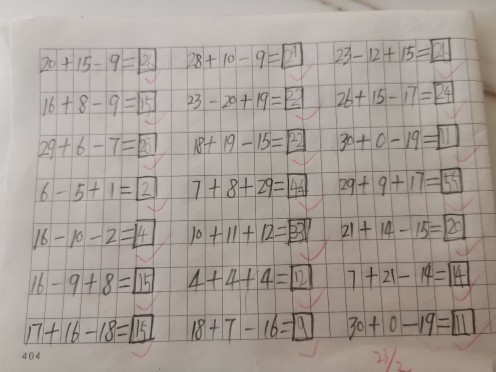 20+15-9=26 28+10-9=29 23-12+15=26
16+8-9=15 23-20+19=22 26+15-17=24
29+6-7=28 18+19-15=22 30+0-19=11
6-5+1=2 7+8+29=44 29+9+17=55
16-10-2=4 10+11+12=33 21+14-15=20
16-9+8=15 4+4+4=12 7+21-14=14
17+16-18=15 18+7-16=9 30+0-19=11
404